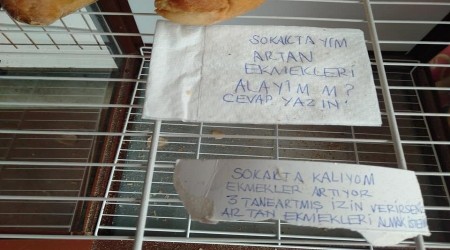 SOKAKTAYIM
ARTAN
EKMEKLERİ
ALAYIM M?
CEVAP YAZIN!
SOKAKTA KALIYOM
EKMEKLER ARTIYOR
3 TANE ARTMIŞ İZİN VERİRSEN
ARTAN EKMEKLERİ ALMAK